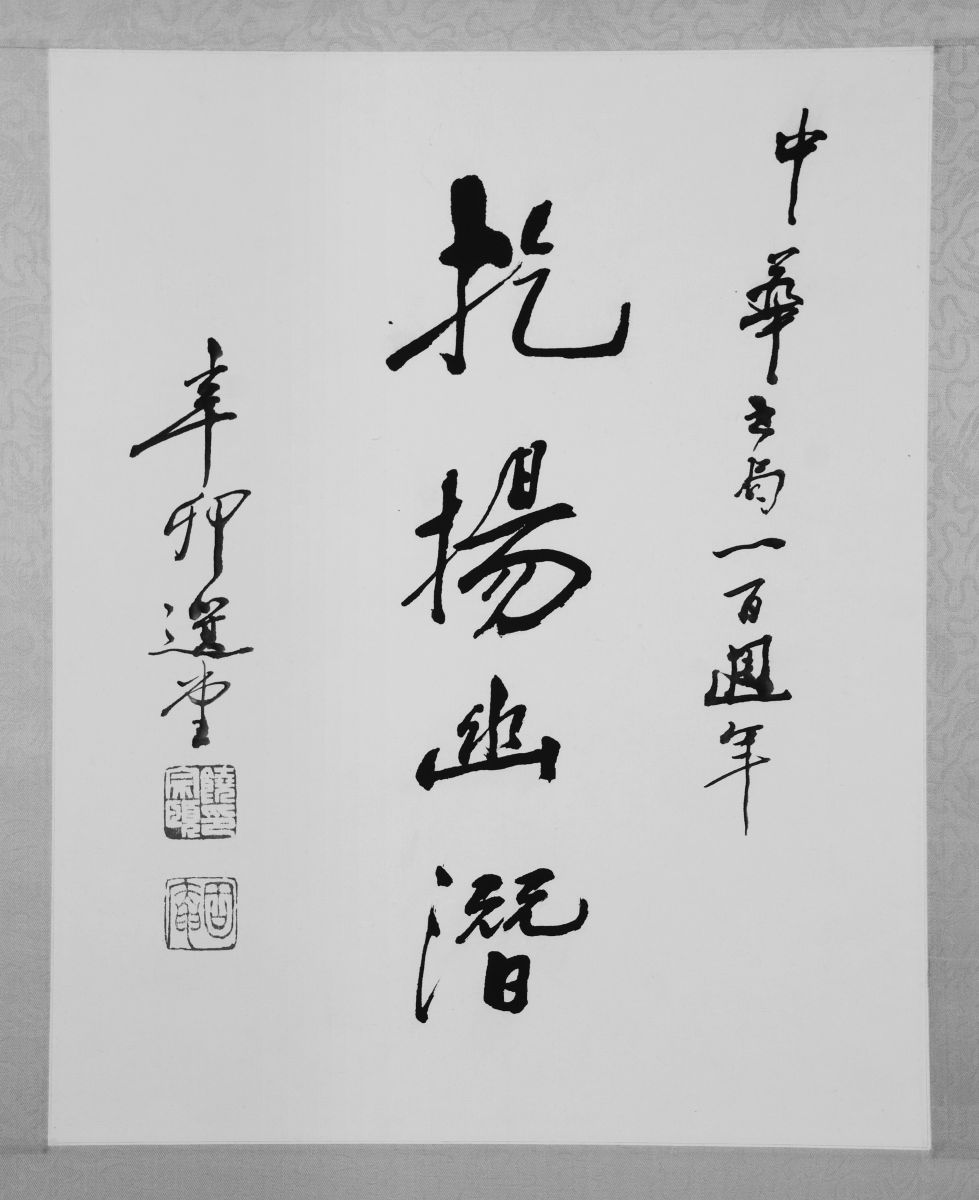 中華書局一百週年
扢揚幽潛
辛卯選堂
饒印宗頤
固庵